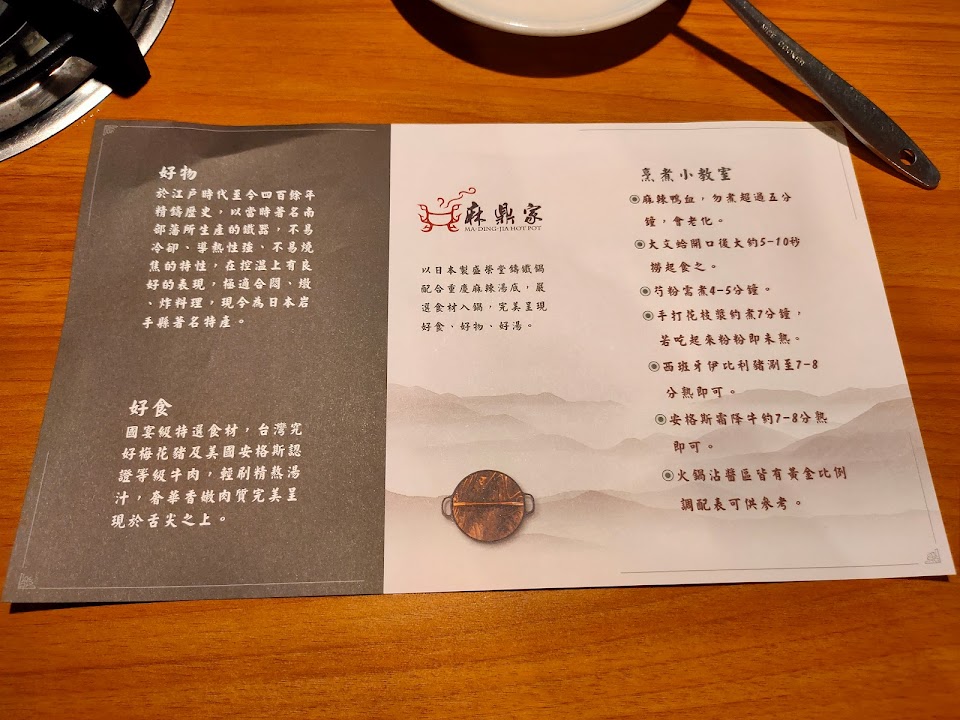 NICE COOKER
好物
於江戶時代至今四百餘年
精鑄歷史，以當時著名南
部藩所生產的鐵器，不易
冷卻、導熱性強、不易燒
焦的特性，在控溫上有良
好的表現，極適合悶、燉
、炸料理，現今為日本岩
手縣著名特產。
好食
國宴級特選食材，台灣究
好梅花豬及美國安格斯認
證等級牛肉，輕刷精熬湯
汁，奢華香嫩肉質完美呈
現於舌尖之上。
麻鼎家
MA-DING-JIA HOT POT
以日本製盛榮堂鑄鐵鍋
配合重慶麻辣湯底，嚴
選食材入鍋，完美呈現
好食、好物、好湯。
烹煮小教室
麻辣鴨血，勿煮超過五分
鐘，會老化。
大文蛤開口後大約5-10秒
撈起食之。
芍粉需煮4-5分鐘。
手打花枝漿約煮7分鐘，
若吃起來粉粉即未熟。
西班牙伊比利豬涮至7-8
分熟即可。
安格斯霜降牛約7-8分熟
即可。
火鍋沾醬區皆有黃金比例
調配表可供參考。